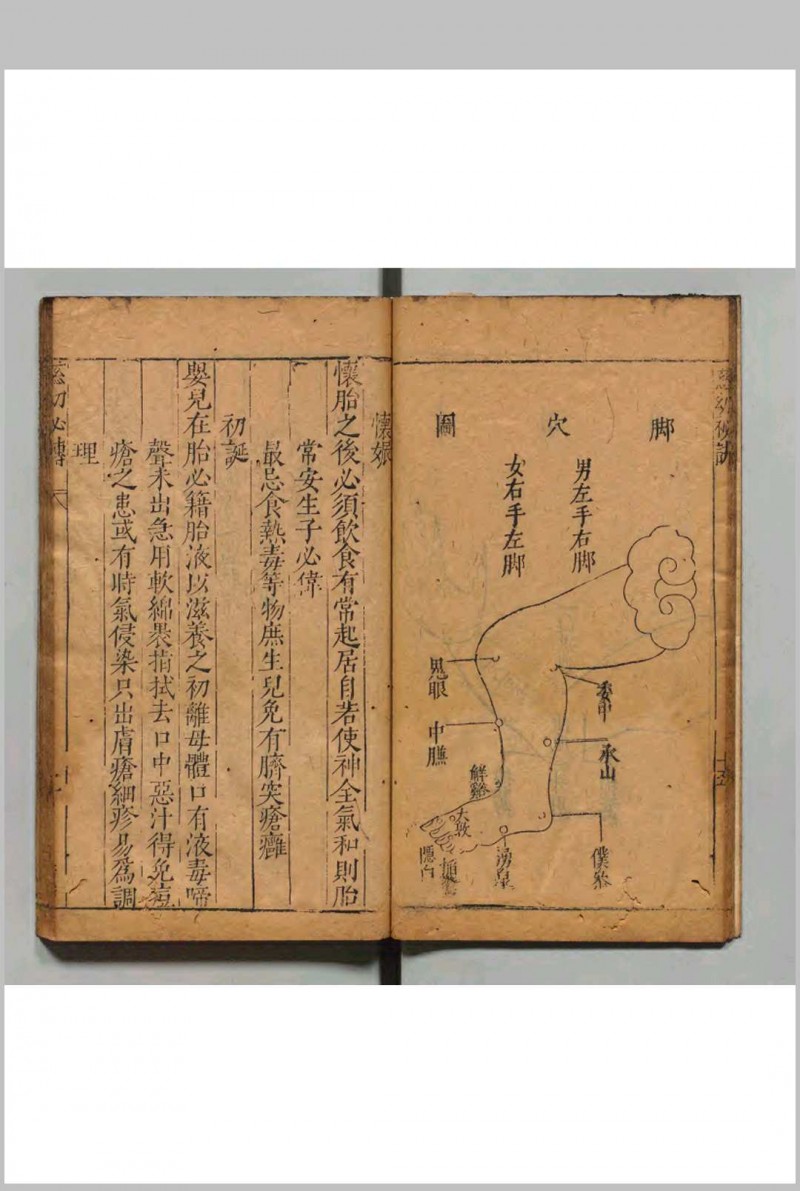 脚穴圖
男左手右脚
女右手左脚
委中
承山
僕參
鬼眼
中臁
解谿
大敦
湧泉
隱白
懷娠
懷胎之後必須飲食有常起居自若使神全氣和則胎
常安生子必偉
最忌食熱毒等物庶生兒免有臍突瘡癰
初誕
嬰兒在胎必籍胎液以滋養之初離母體口有液毒啼
聲未出急用軟綿裹指拭去口中惡汁得免痘
瘡之患或有時氣侵染只出膚瘡細疹易爲調
理